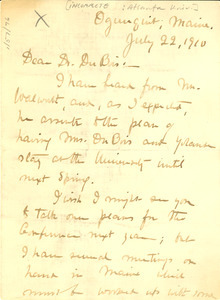 Ogunquit, Maine.
July 22, 1910
Dear Dr. DuBois:—
I have heard from Mr.
and, as I expected,
he assents to the plan of
having Mrs. DuBois and Yolande
stay at the University until
next Spring.
I wish I might see you
to talk over plans for the
Conference next year; but
I have several meetings on
hand in Maine which
must be worked up with some